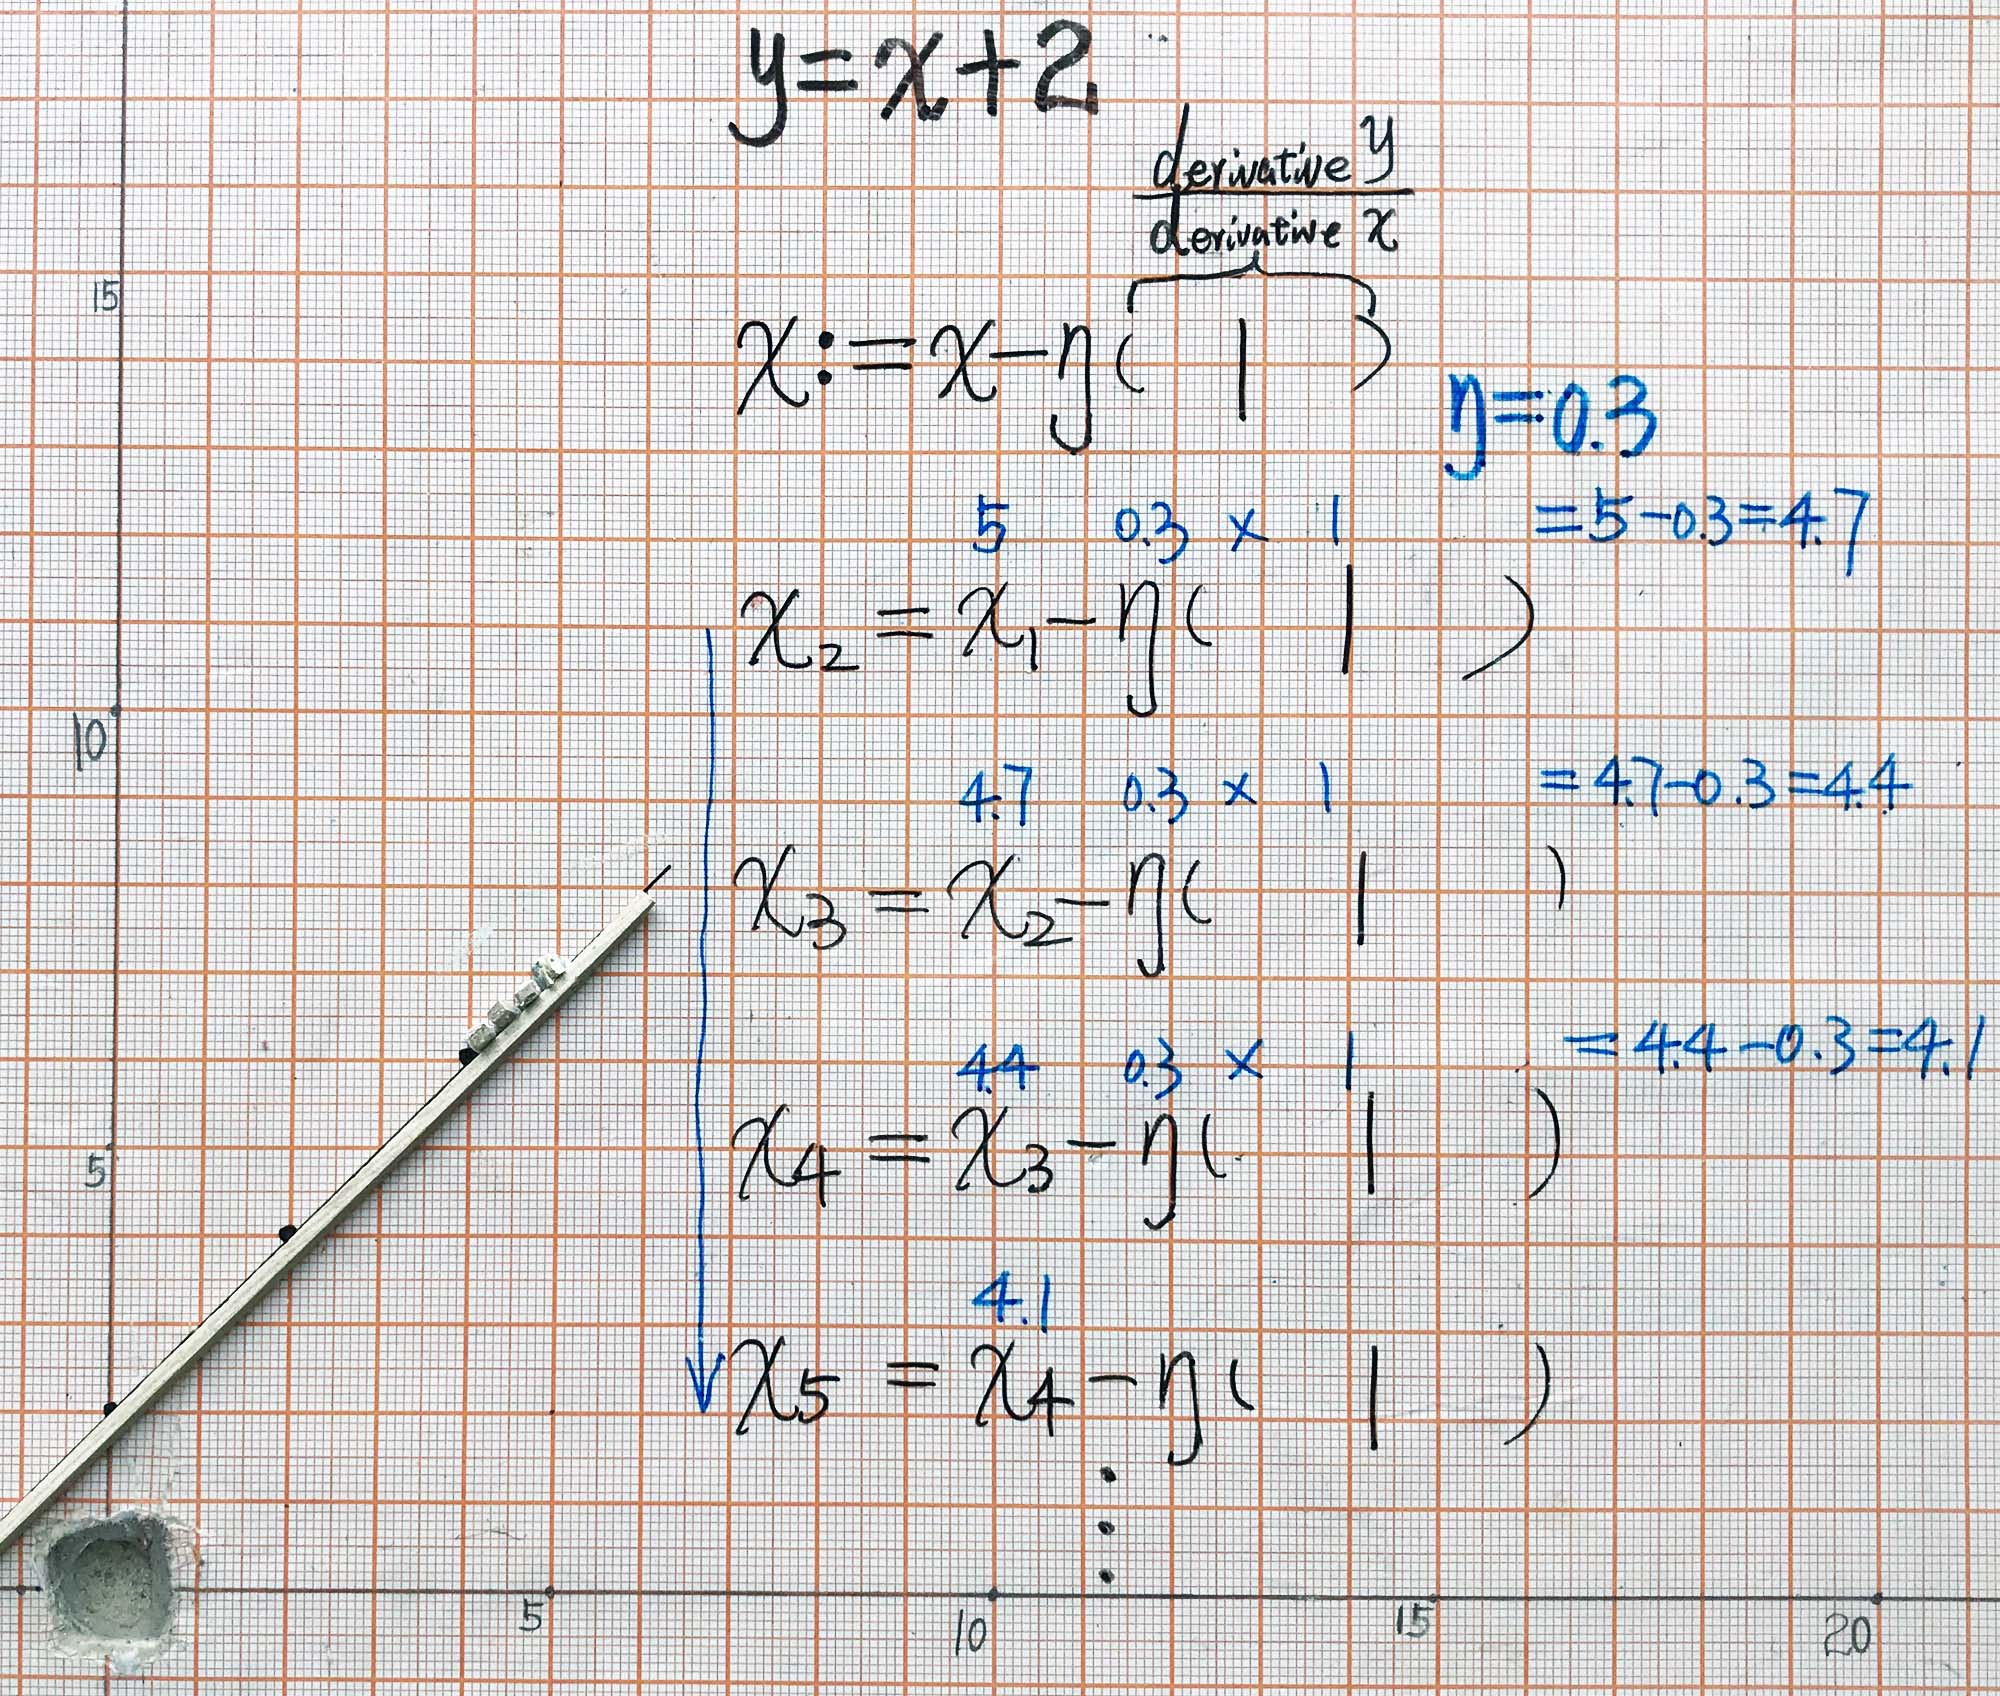 y=x+2
derivative y
derivative x
15
x:=x-η( 1 )
η=0.3
5 0.3 × 1 =5-0.3=4.7
x₂ = x₁-η( 1 )
10
4.7 0.3 × 1 =4.7-0.3=4.4
x₃ = x₂-η( 1 )
4.4 0.3 × 1 =4.4-0.3=4.1
5
x₄ = x₃-η( 1 )
4.1
x₅ = x₄-η( 1 )
5 10 15 20